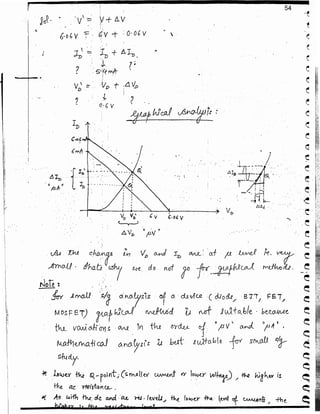 54
Sol:- V' = V + ΔV
6.06V = 6V + 0.06V
I_D' = I_D + ΔI_D
? 5.4mA ?
V_D' = V_D + ΔV_D
? 0.6V ?
Graphical Analysis :
I_D
6mA
ΔI_D
"μA"
I_D'
I_D
Q'
Q
V_D V_D' 6V 6.06V V_D
ΔV_D "μV"
As the change in V_D and I_D are at μ level i.e. very
small. That's why we do not go for graphical methods.
Note :
For small s/g analysis of a device (diode, BJT, FET,
MOSFET) graphical method is not suitable because
the variations are in the order of "μV" and "μA".
Mathematical analysis is best suitable for small s/g
study.
* Lower the Q-point; (smaller current or lower voltage), the higher is
the ac resistance.
* As with the dc and ac res. levels, the lower the level of currents, the